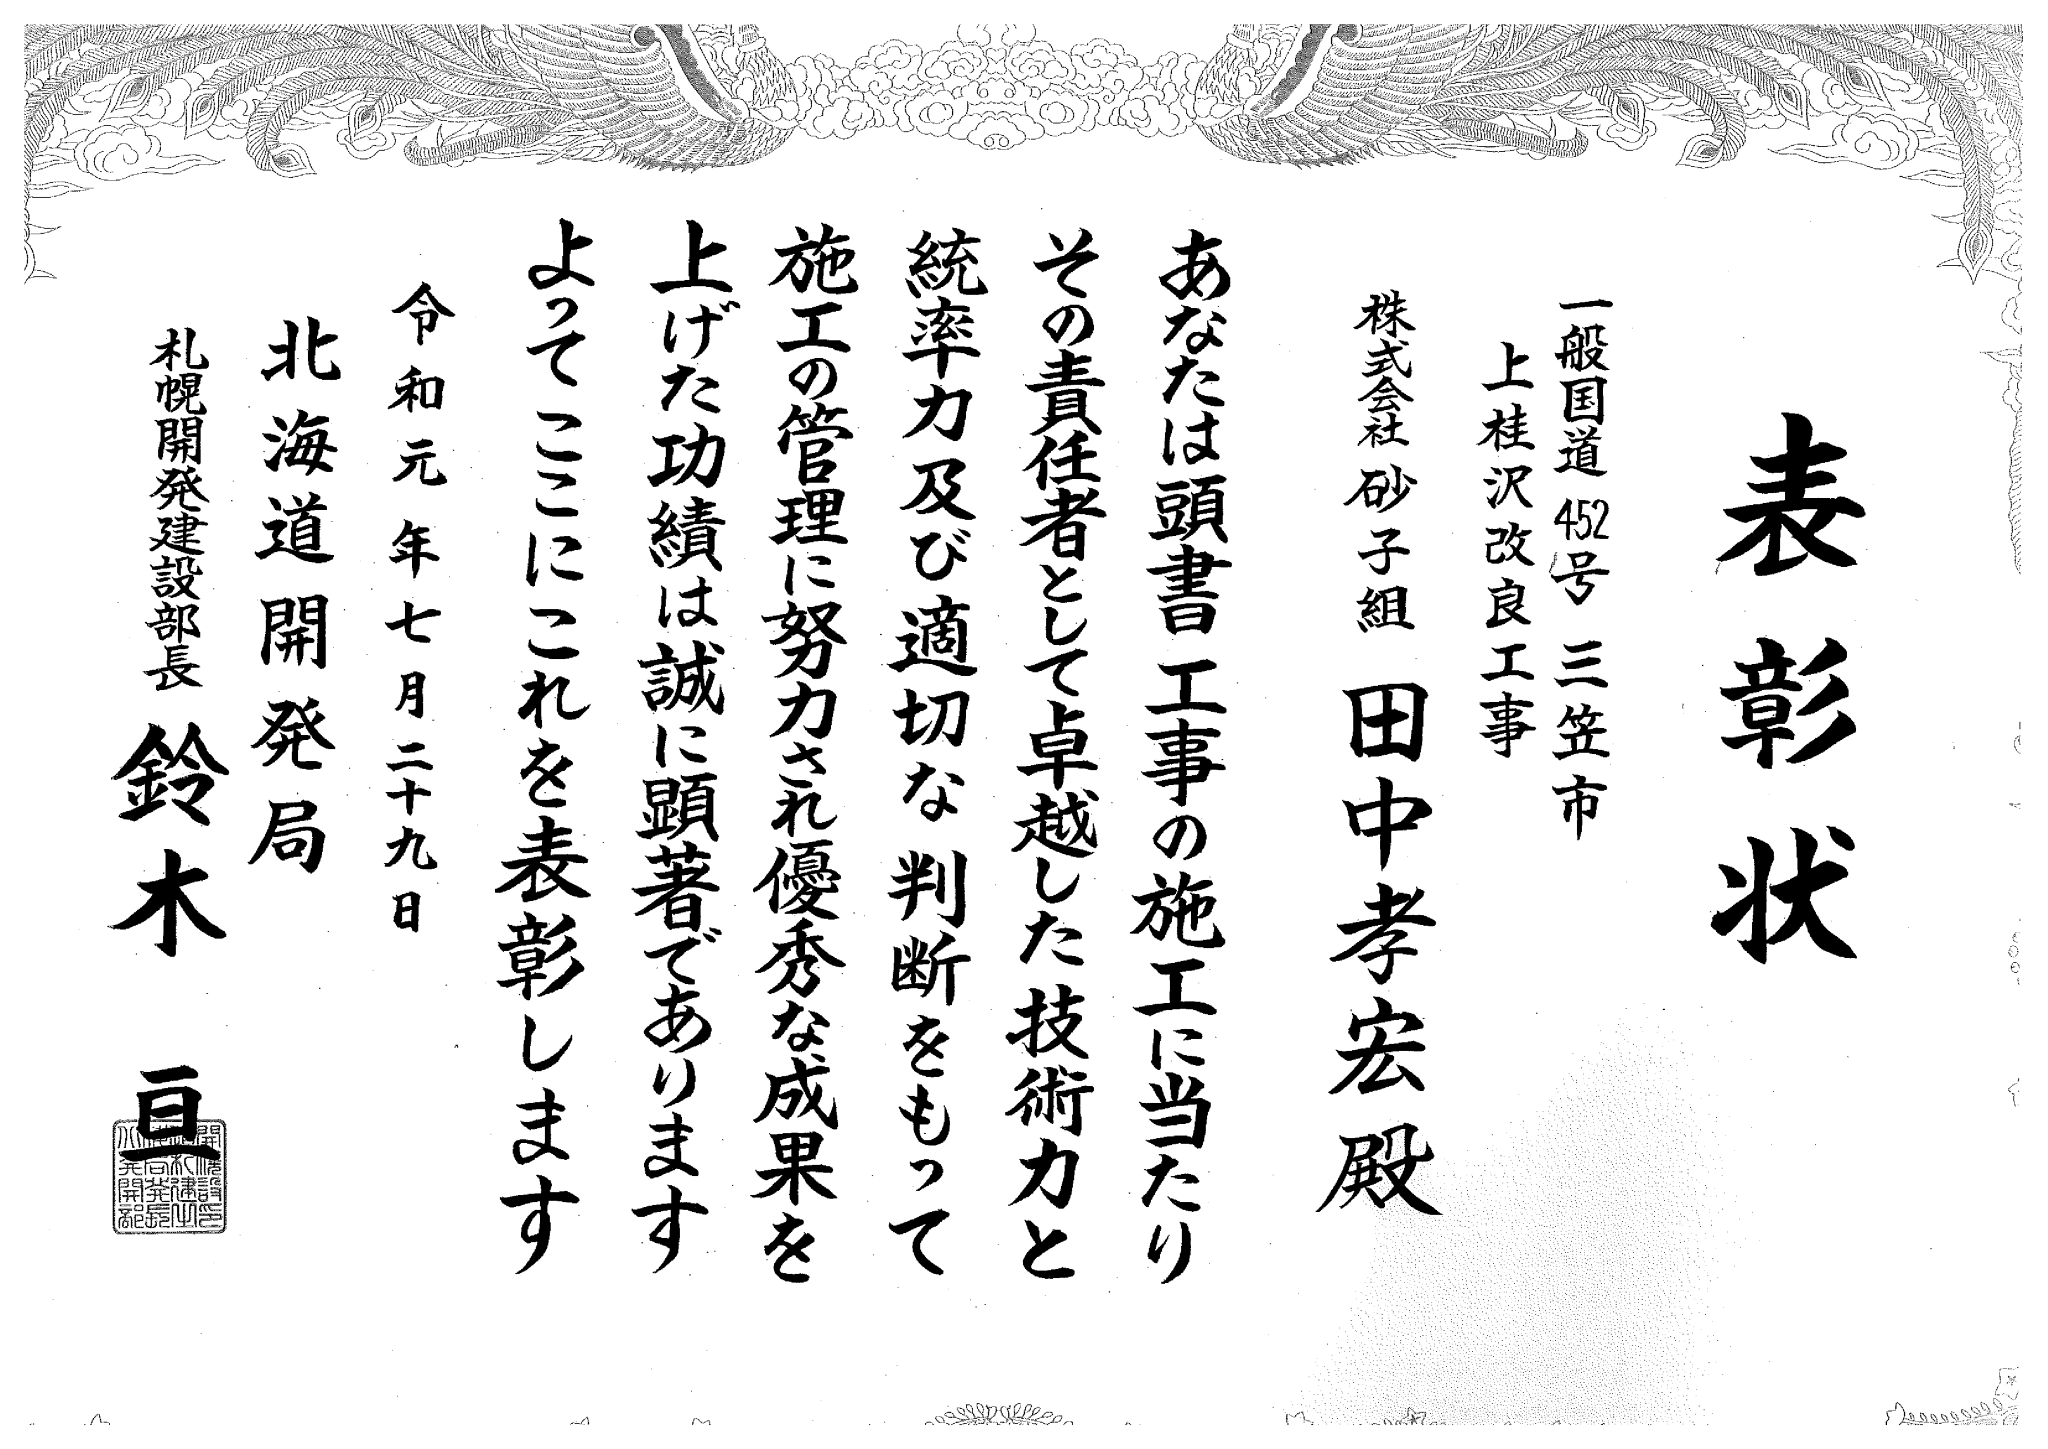 表彰状
一般国道452号 三笠市
上桂沢改良工事
株式会社 砂子組 田中孝宏殿
あなたは頭書工事の施工に当たり
その責任者として卓越した技術力と
統率力及び適切な判断をもって
施工の管理に努力され優秀な成果を
上げた功績は誠に顕著であります
よってここにこれを表彰します
令和元年七月二十九日
北海道開発局
札幌開発建設部長 鈴木 亘